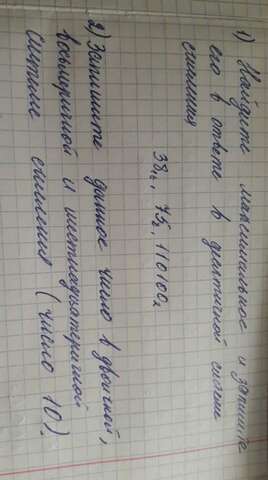 1) Найдите максимальное и запишите
его в ответе в десятичной системе
счисления
38₁₆, 75₈, 110100₂
2) Запишите данное число в двоичной,
восьмиричной и шестнадцатеричной
системе счисления (число 10).